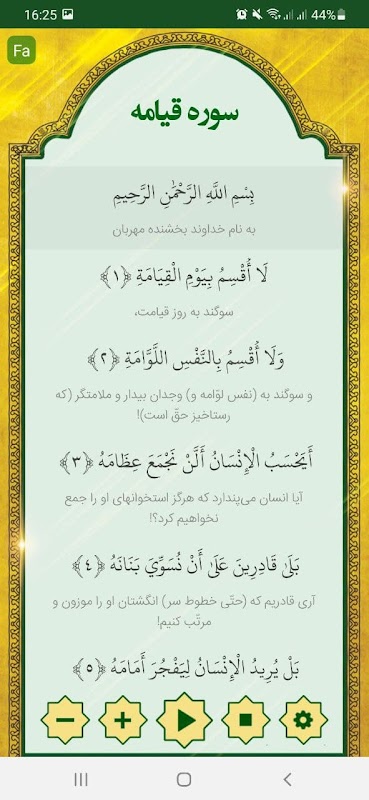 16:25
44%
Fa
سوره قیامه
بِسْمِ اللَّهِ الرَّحْمَٰنِ الرَّحِيمِ
به نام خداوند بخشنده مهربان
لَا أُقْسِمُ بِيَوْمِ الْقِيَامَةِ ﴿١﴾
سوگند به روز قیامت،
وَلَا أُقْسِمُ بِالنَّفْسِ اللَّوَّامَةِ ﴿٢﴾
و سوگند به (نفس لوّامه و) وجدان بیدار و ملامتگر (که
رستاخیز حقّ است)!
أَيَحْسَبُ الْإِنْسَانُ أَلَّنْ نَجْمَعَ عِظَامَهُ ﴿٣﴾
آیا انسان می‌پندارد که هرگز استخوانهای او را جمع
نخواهیم کرد؟!
بَلَىٰ قَادِرِينَ عَلَىٰ أَنْ نُسَوِّيَ بَنَانَهُ ﴿٤﴾
آری قادریم که (حتّی خطوط سر) انگشتان او را موزون و
مرتّب کنیم!
بَلْ يُرِيدُ الْإِنْسَانُ لِيَفْجُرَ أَمَامَهُ ﴿٥﴾